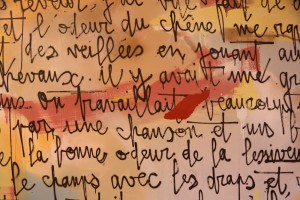 et l'odeur du chêne me
des veillées en jouant au
chevaux. il y avait une
On travaillait beaucoup
par une chanson et un
la bonne odeur de la lessive
le champs avec les draps et,